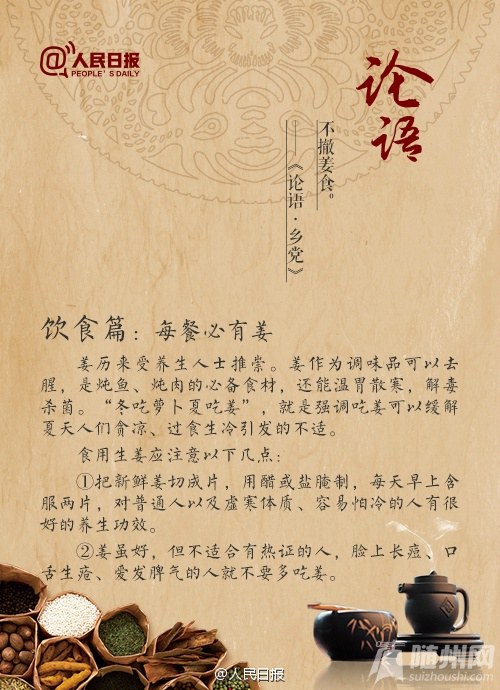 @人民日报
PEOPLE'S DAILY
论语
不撤姜食。
——《论语·乡党》
饮食篇：每餐必有姜
姜历来受养生人士推崇。姜作为调味品可以去
腥，是炖鱼、炖肉的必备食材，还能温胃散寒，解毒
杀菌。“冬吃萝卜夏吃姜”，就是强调吃姜可以缓解
夏天人们贪凉、过食生冷引发的不适。
食用生姜应注意以下几点：
①把新鲜姜切成片，用醋或盐腌制，每天早上含
服两片，对普通人以及虚寒体质、容易怕冷的人有很
好的养生功效。
②姜虽好，但不适合有热证的人，脸上长痘、口
舌生疮、爱发脾气的人就不要多吃姜。
@人民日报
随州网
suizhoushi.com